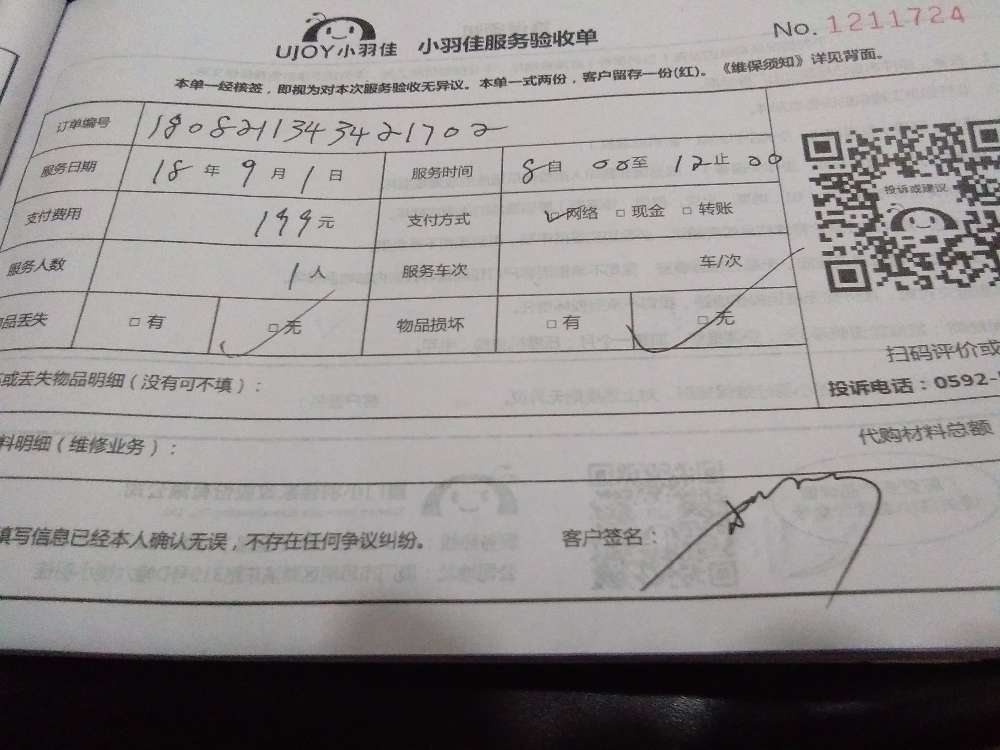 UJOY小羽佳 小羽佳服务验收单 No. 1211724
本单一经核签，即视为对本次服务验收无异议。本单一式两份，客户留存一份(红)。《维保须知》详见背面。
订单编号 180821134342 1702
服务日期 18 年 9 月 1 日 服务时间 8 自 00 至 12 止 00
支付费用 199 元 支付方式 ☑网络 □现金 □转账
投诉或建议
服务人数 1 人 服务车次 车/次
品丢失 □有 ☑无 物品损坏 □有 ☑无
扫码评价或
或丢失物品明细（没有可不填）： 投诉电话：0592-
料明细（维修业务）： 代购材料总额
填写信息已经本人确认无误，不存在任何争议纠纷。 客户签名：